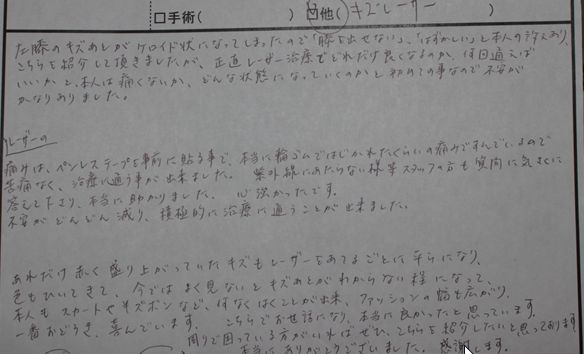 □手術( ) ☑他( キズレーザー )
左膝のキズあとがケロイド状になってしまったので「膝を出せない」、「はずかしい」と本人の訴えあり、
こちらを紹介して頂きましたが、正直レーザー治療でどれだけ良くなるのか、何回通えば
いいかと、本人は痛くないか、どんな状態になっていくのかと初めての事なので不安が
かなりありました。
レーザーの
痛みは、ペンレステープを事前に貼る事で、本当に輪ゴムではじかれたくらいの痛みですんでいるので
苦痛なく、治療に通う事が出来ました。 紫外線にあたらない様等スタッフの方も質問に気さくに
答えて下さり、本当に助かりました。 心強かったです。
不安がどんどん減り、積極的に治療に通うことが出来ました。
あれだけ赤く盛り上がっていたキズもレーザーをあてるごとに平らになり、
色もひいてきて、今ではよく見ないとキズあとがわからない様になって、
本人もスカートやキズボンなど、何なくはくことが出来、ファッションの幅も広がり、
一番おどろき、喜んでいます。 こちらでお世話になり、本当に良かったと思っています。
周りで困っている方がいればぜひ、こちらを紹介したいと思っております
本当にありがとうございました。感謝します。